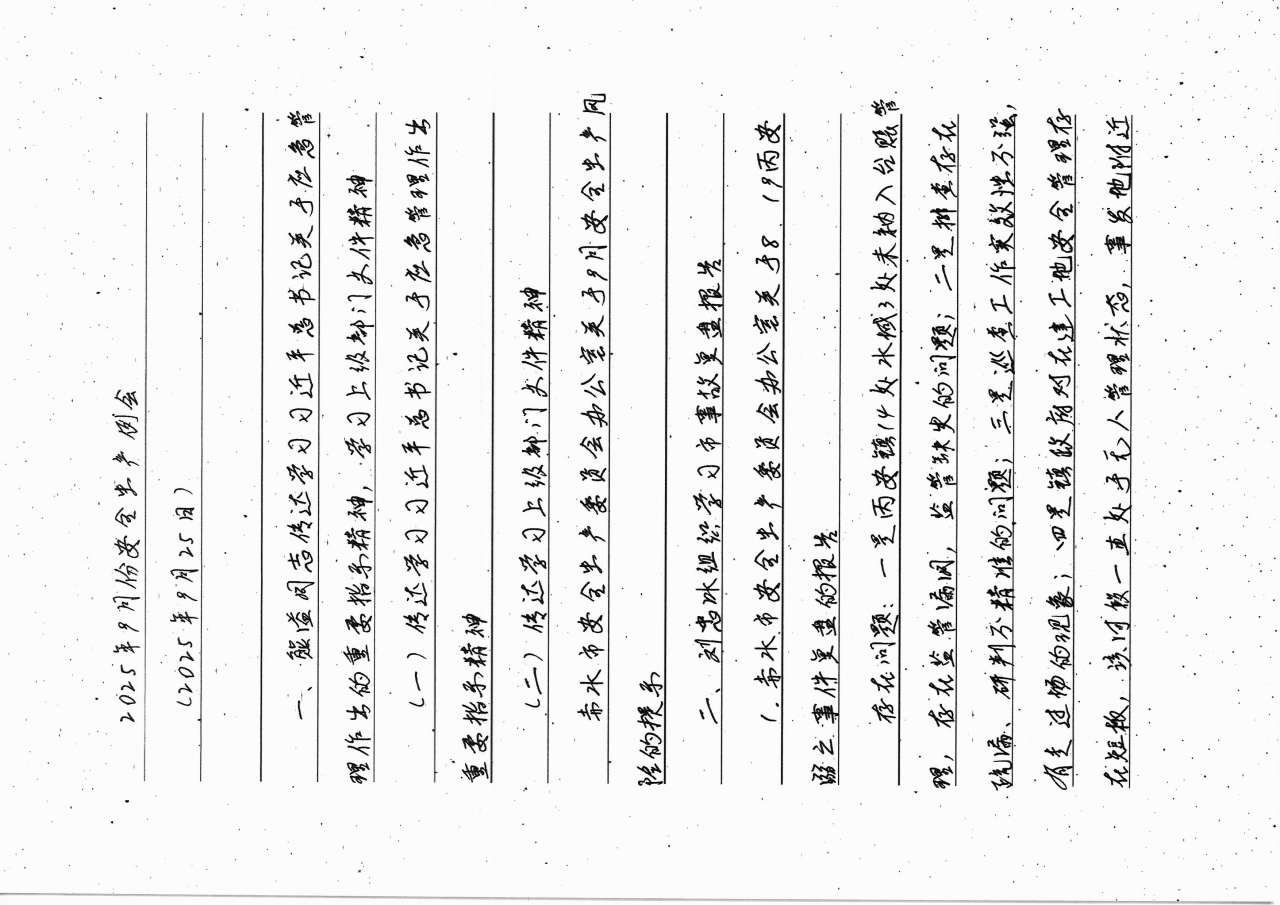 2025年9月份安全生产例会
(2025年9月25日)
一、熊溢同志传达学习习近平总书记关于应急管
理作出的重要指示精神,学习上级部门文件精神
(一)传达学习习近平总书记关于应急管理作出
重要指示精神
(二)传达学习上级部门文件精神
赤水市安全生产委员会办公室关于9月安全生产风
险的提示
二、刘忠冰组织学习市事故复盘报告
1.赤水市安全生产委员会办公室关于8.19丙安
溺亡事件复盘的报告
存在问题:一是丙安镇14处水域3处未纳入台账管
理,存在监管漏洞,监管缺失的问题;二是排查存在
疏漏、研判不精准的问题;三是巡查工作实效性不强,
有走过场的现象;四是镇政府对在建工地安全管理存
在短板,该河段一直处于无人管理状态,事发地附近